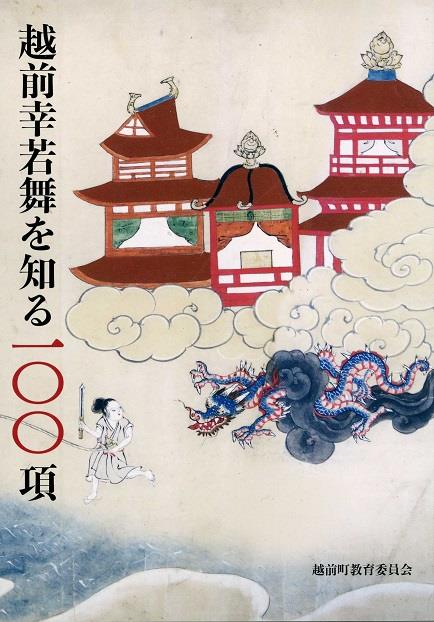 越前幸若舞を知る一〇〇項
越前町教育委員会